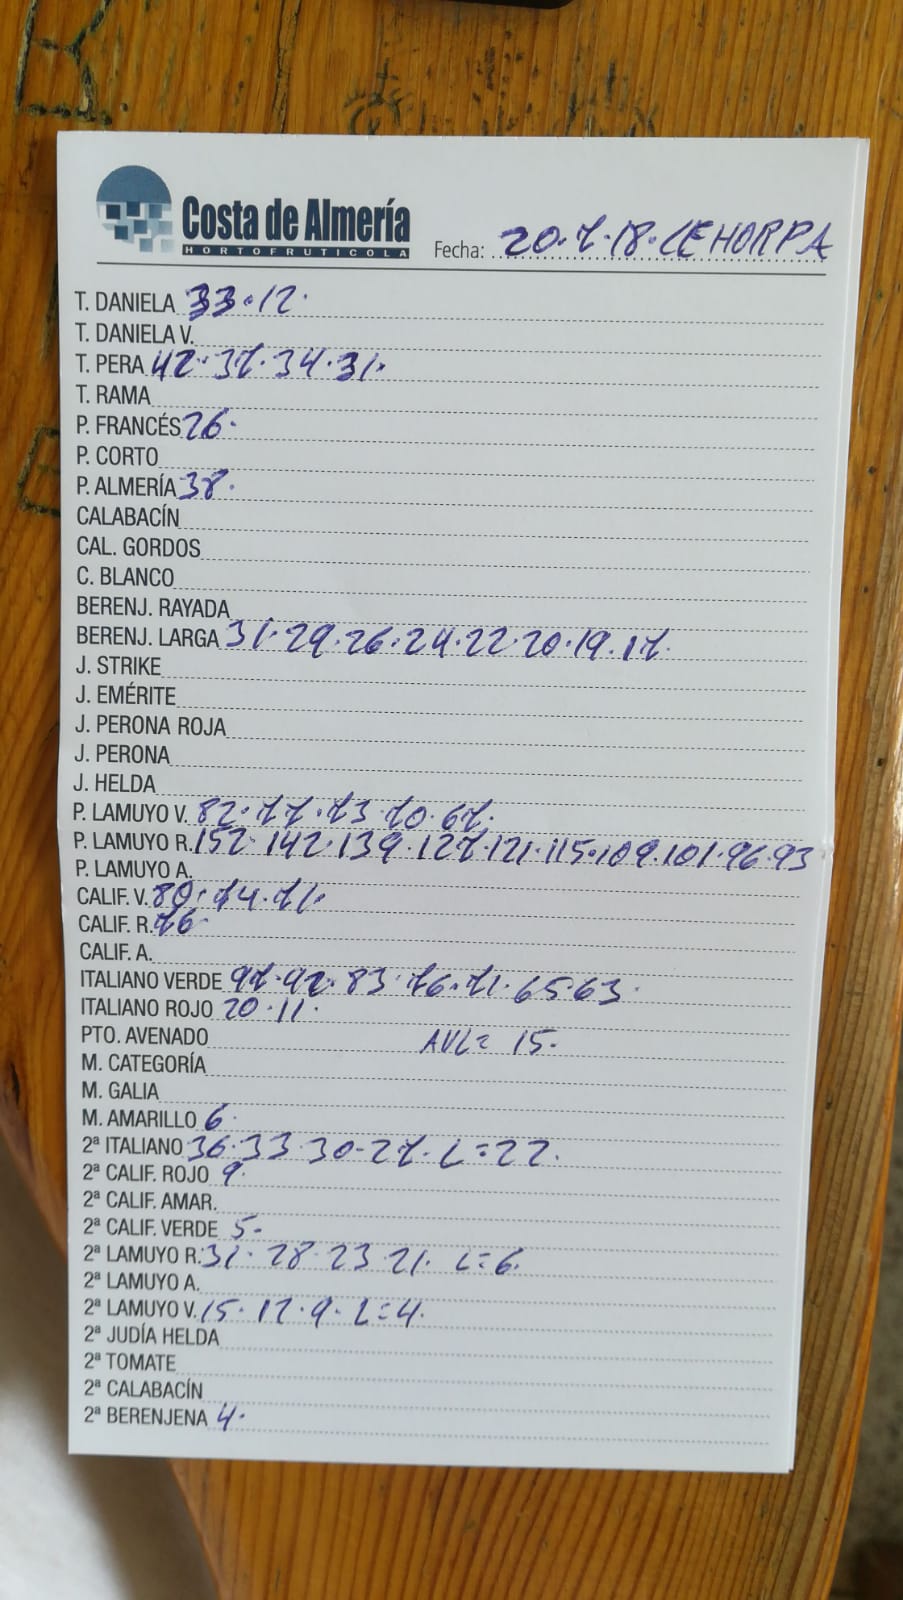 Costa de Almería
HORTOFRUTICOLA
Fecha: 20.7.18. CEHORPA
T. DANIELA 33.12.
T. DANIELA V.
T. PERA 42.37.34.31.
T. RAMA
P. FRANCÉS 26.
P. CORTO
P. ALMERÍA 38.
CALABACÍN
CAL. GORDOS
C. BLANCO
BERENJ. RAYADA
BERENJ. LARGA 31.29.26.24.22.20.19.17.
J. STRIKE
J. EMÉRITE
J. PERONA ROJA
J. PERONA
J. HELDA
P. LAMUYO V. 82.77.73.70.67.
P. LAMUYO R. 152.142.139.127.121.115.109.101.96.93
P. LAMUYO A.
CALIF. V. 80.74.71.
CALIF. R. 76.
CALIF. A.
ITALIANO VERDE 97.92.83.76.71.65.63.
ITALIANO ROJO 20.11.
PTO. AVENADO AVL= 15.
M. CATEGORÍA
M. GALIA
M. AMARILLO 6.
2ª ITALIANO 36.33.30.27. L=22.
2ª CALIF. ROJO 9.
2ª CALIF. AMAR.
2ª CALIF. VERDE 5.
2ª LAMUYO R. 31.28.23.21. L=6.
2ª LAMUYO A.
2ª LAMUYO V. 15.12.9. L=4.
2ª JUDÍA HELDA
2ª TOMATE
2ª CALABACÍN
2ª BERENJENA 4.